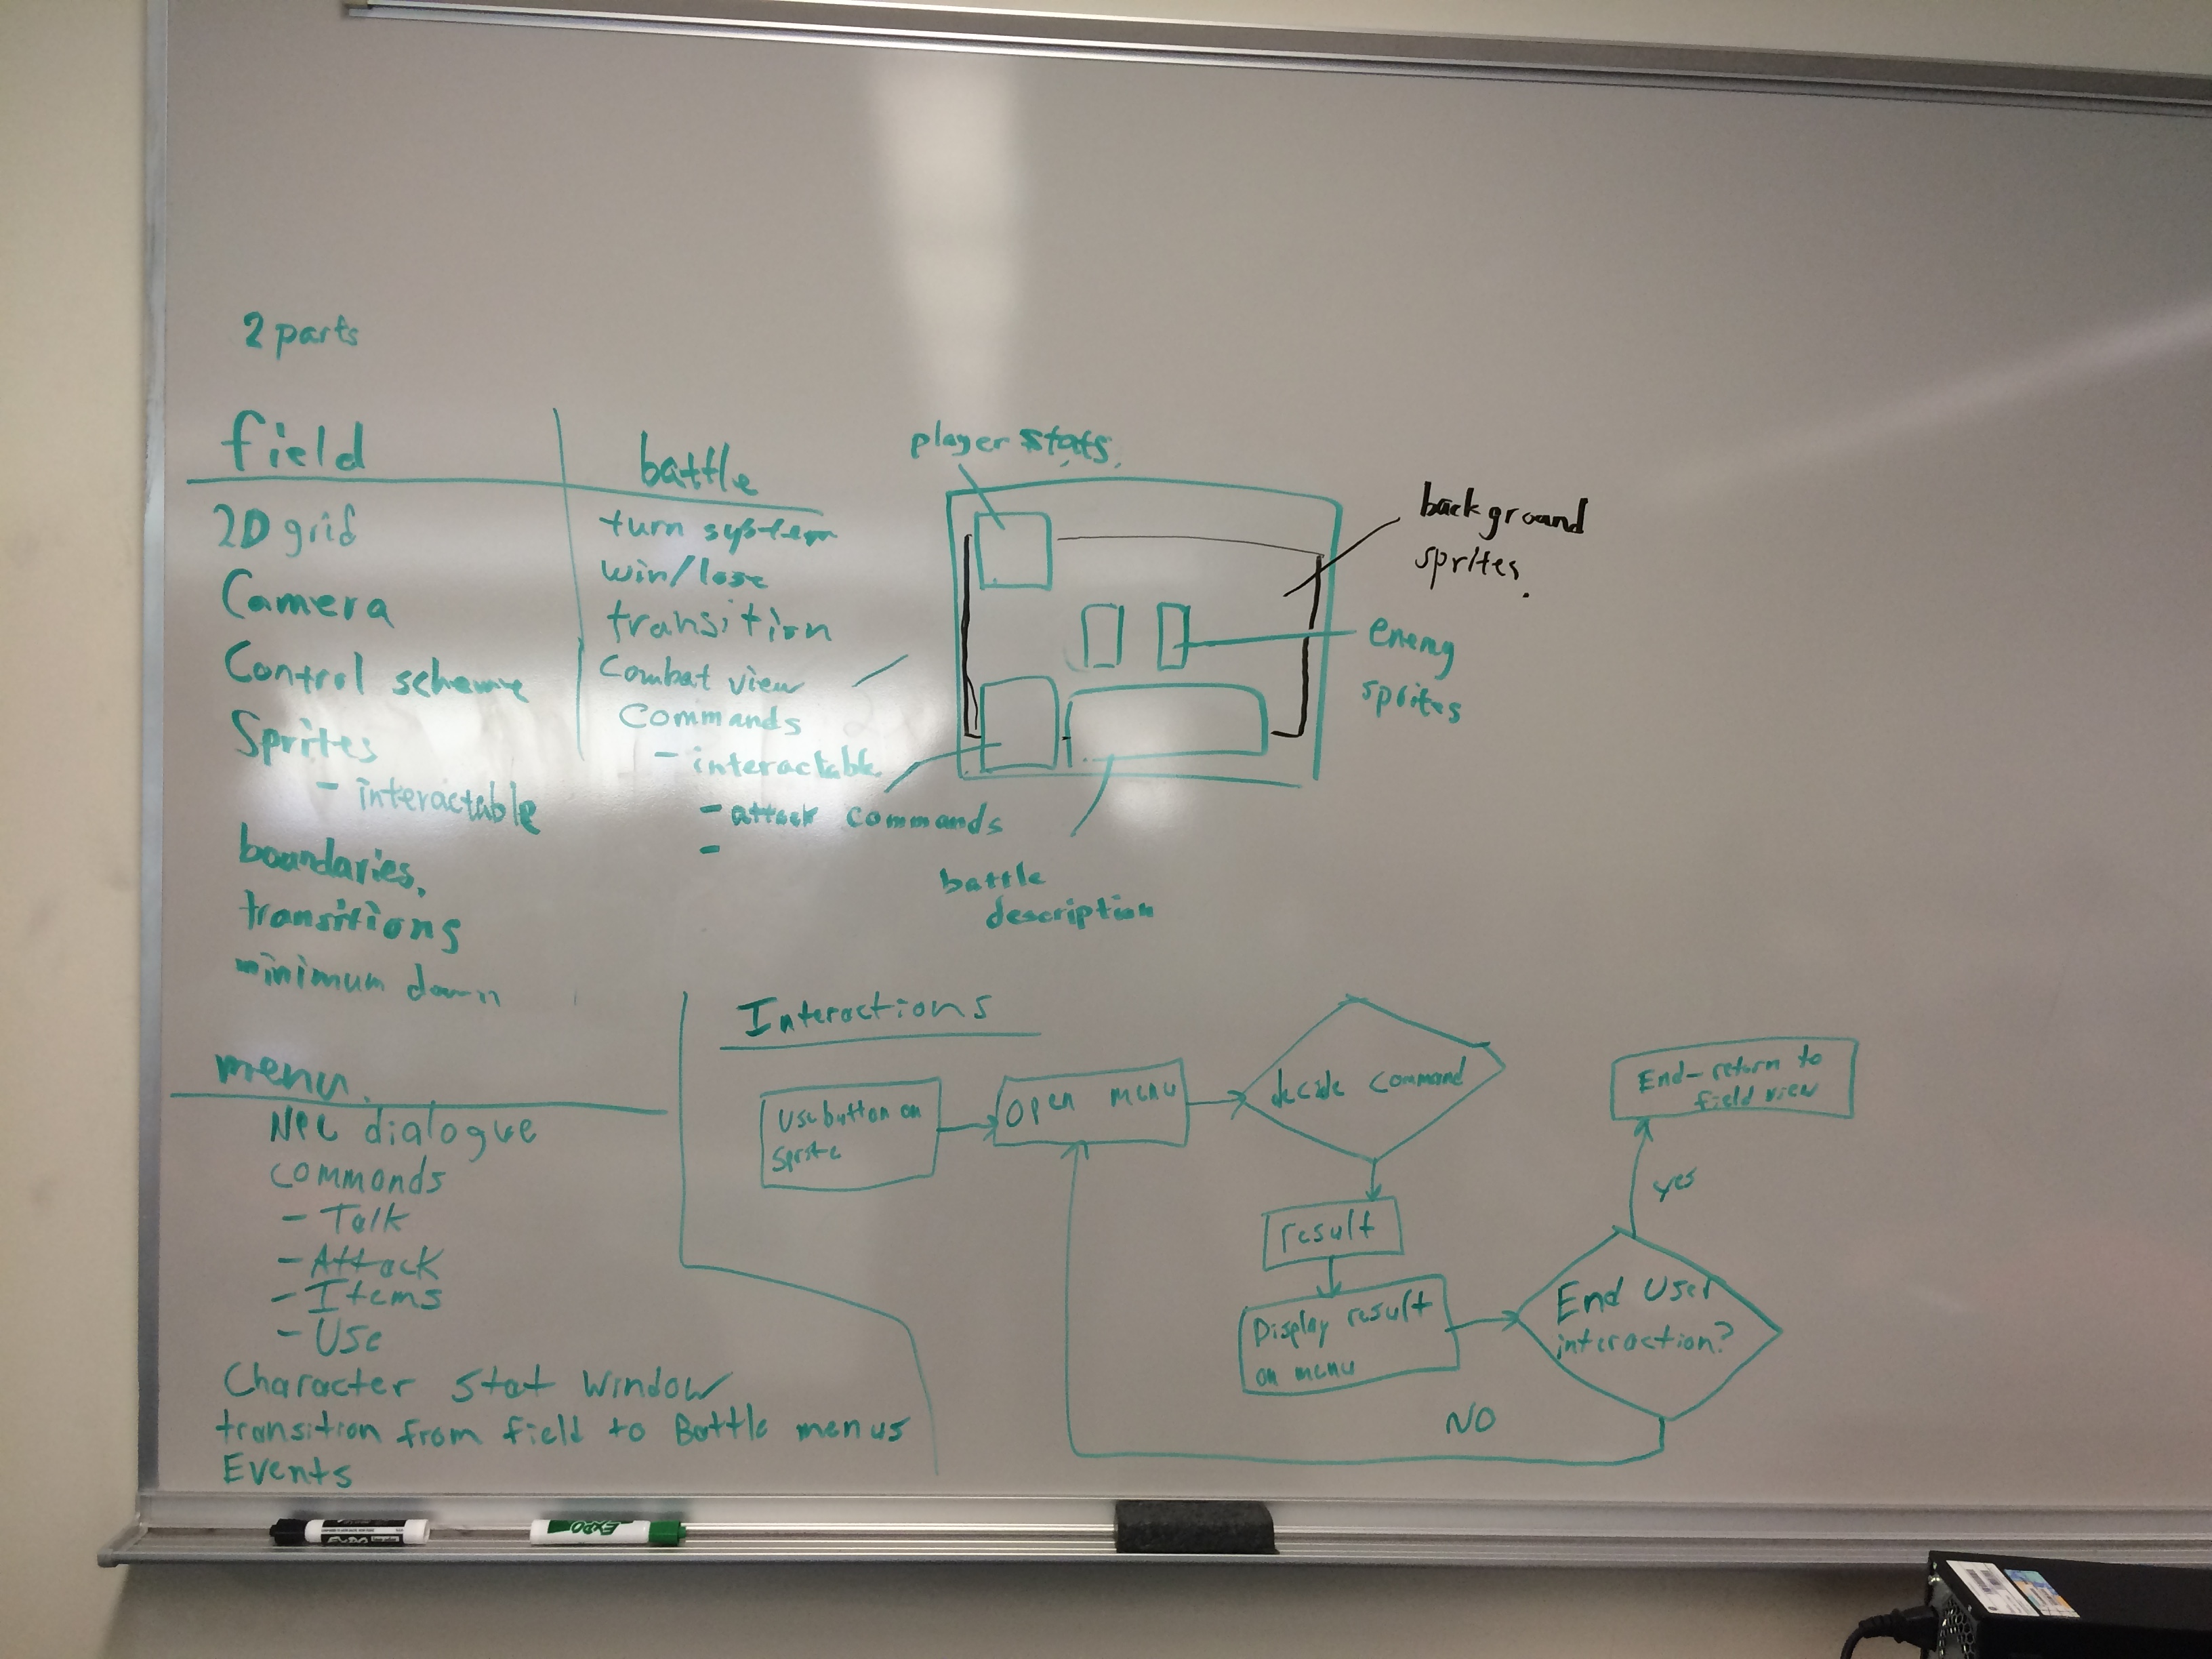 2 parts
field
2D grid
Camera
Control scheme
Sprites
- interactable
boundaries,
transitions
minimum down
battle
turn system
win/lose
transition
Combat view
Commands
- interactable
- attack commands
-
player stats
background
sprites.
enemy
sprites
battle
description
menu
NPC dialogue
commands
- Talk
- Attack
- Items
- Use
Character Stat Window
transition from field to Battle menus
Events
Interactions
Use button on
Sprite
Open menu
decide command
result
Display result
on menu
End User
interaction?
yes
End - return to
field view
NO
EXPO
EXPO